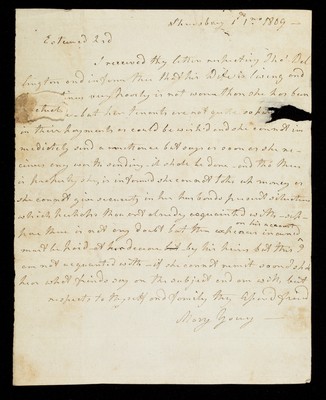 Shrewsbury 1st 1mo 1809
Esteemed Frd
I received thy letter respecting Thos
and inform thee that his Wife is living and
nearly is not worse than she has been
but her Tenants are not quite
in their payments as could be wished and she cannot im
mediately send a remittance but as soon as ever she re
ceives any worth sending, it shall be done, and tho there
is property she is informed she cannot take up money as
she cannot give security in her husbands present situation
which perhaps thou art already acquainted with
there is not any doubt but the expences incurred on his account
must be paid at her decease by his heirs but this I
am not acquainted with if she cannot remit as soon
hear what friends say on the subject and am with
respects to thyself and family thy Friend
Mary Young